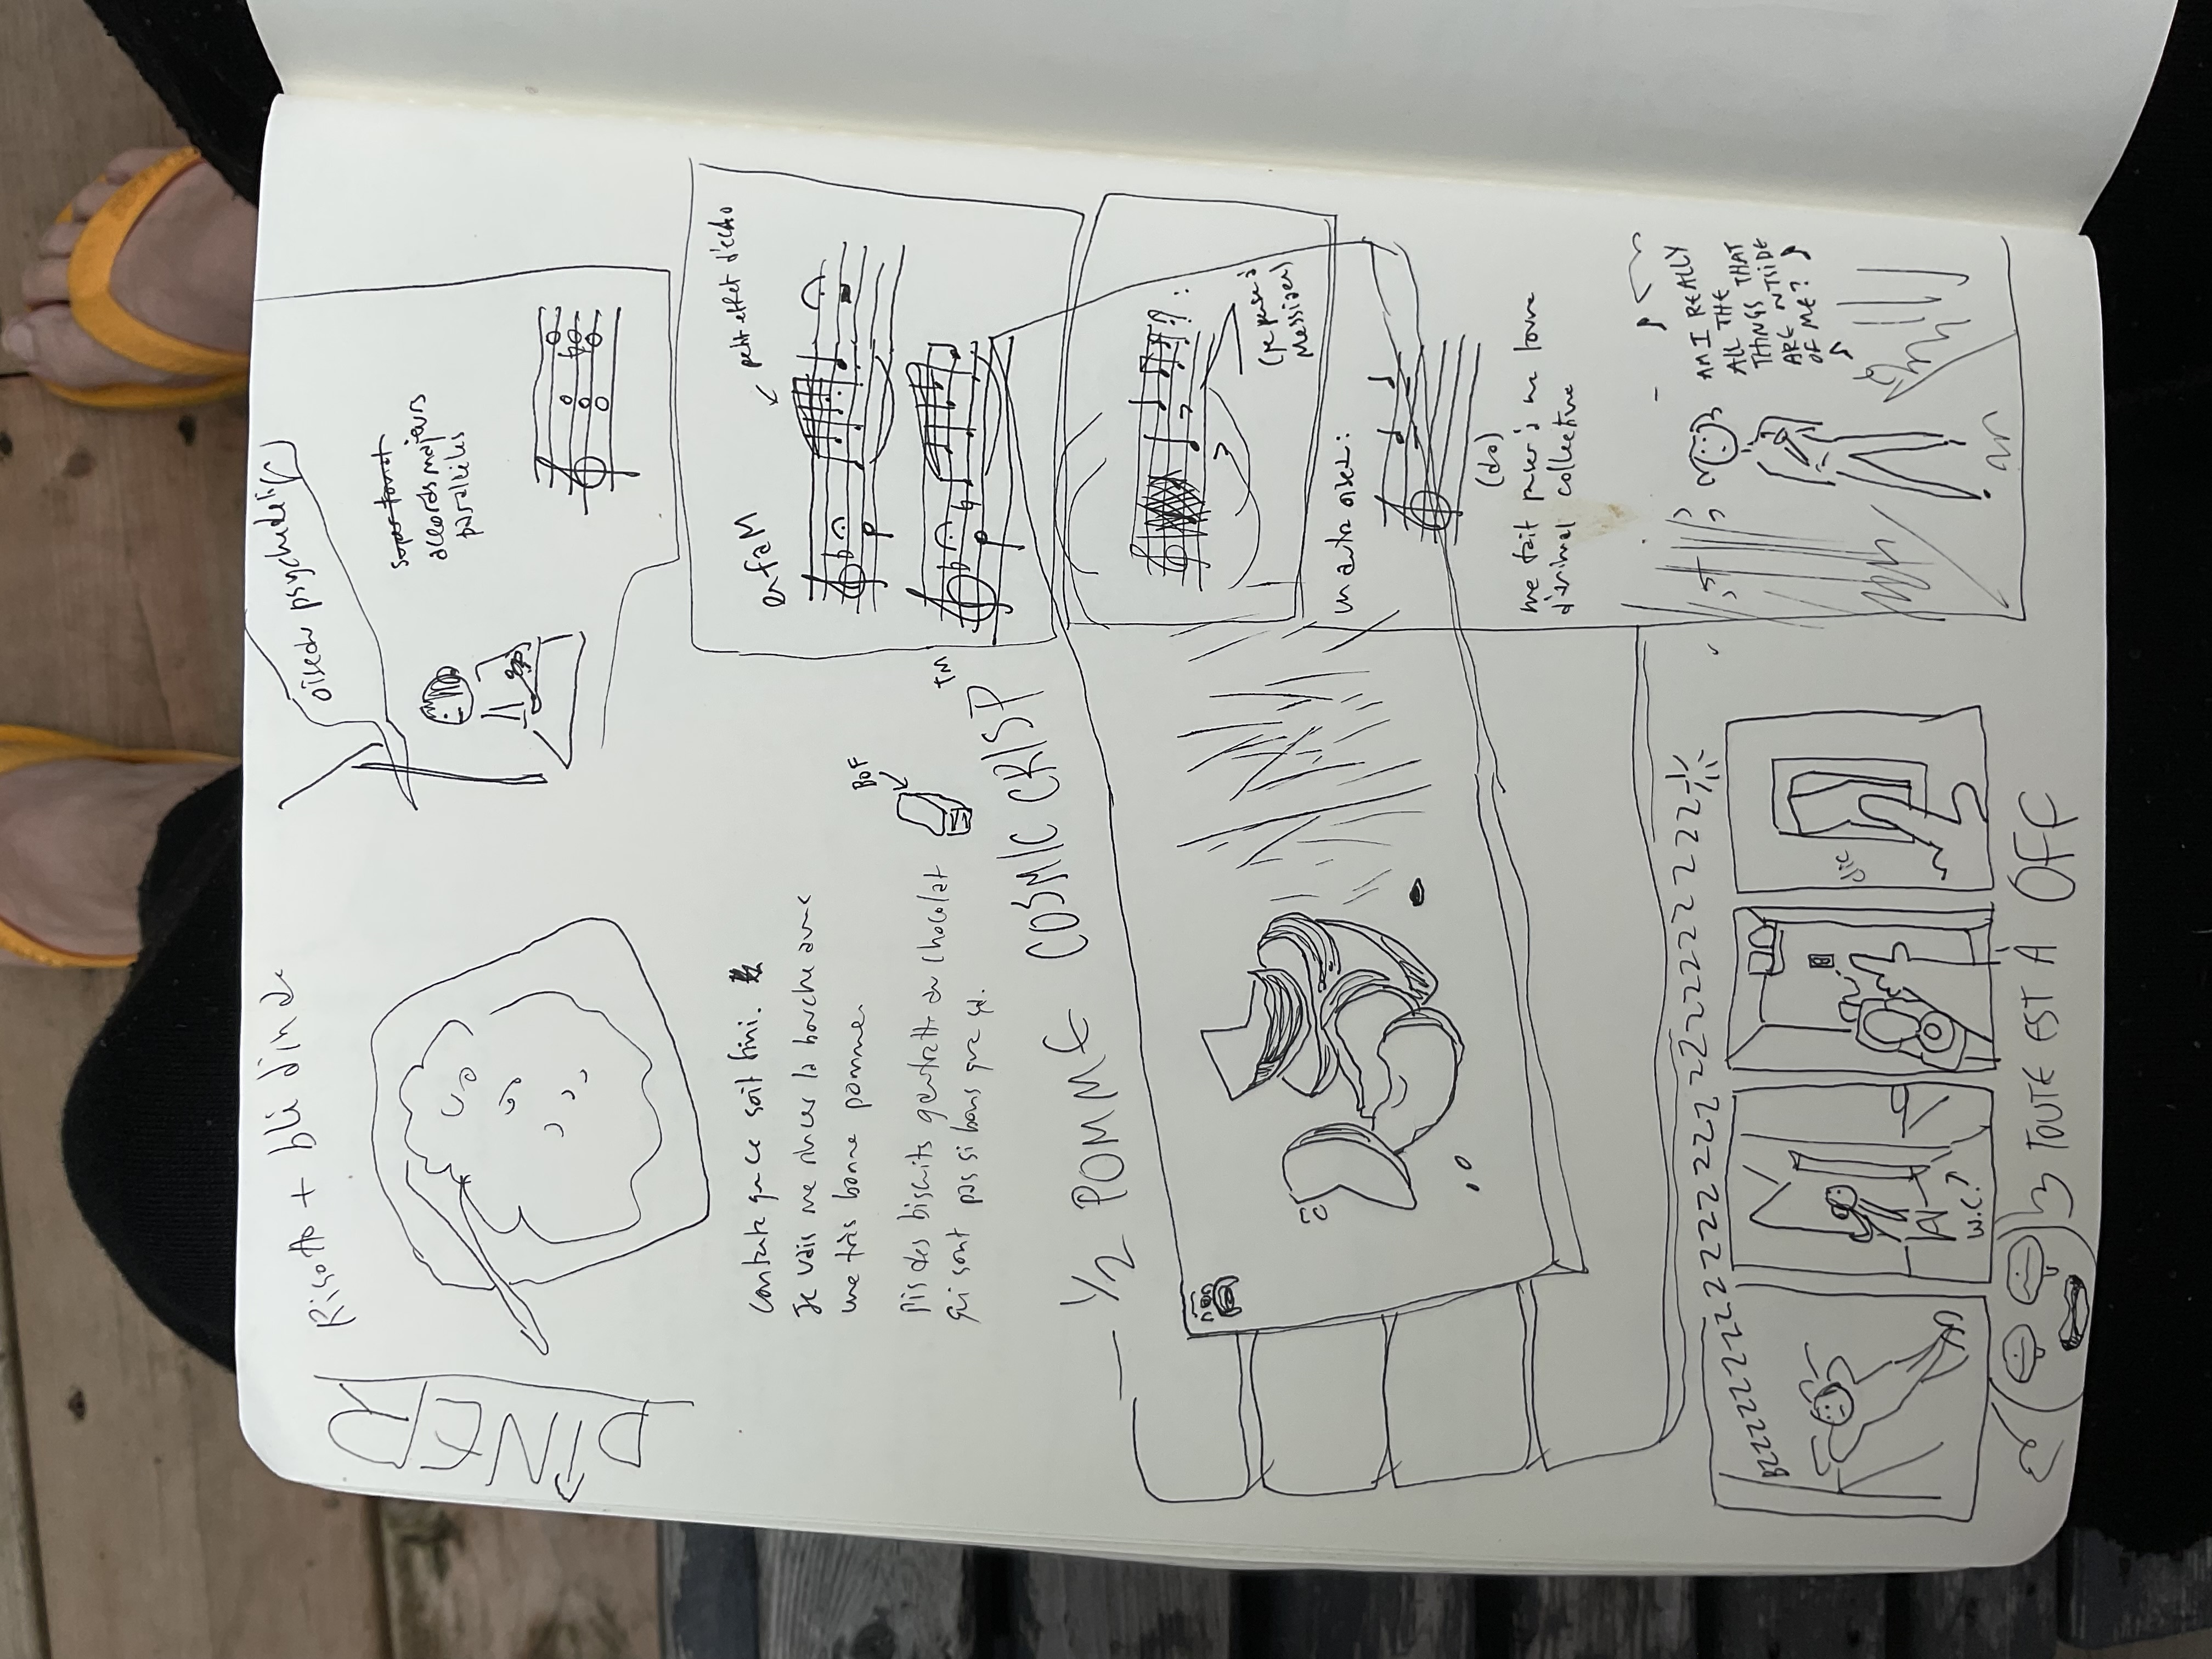 DÎNER
Risotto + blé d'inde
Contente que ce soit fini.
Je vais me rincer la bouche avec
une très bonne pomme
Pis des biscuits gaufrette au chocolat
qui sont pas si bons que ça.
BOF
1/2 POMME COSMIC CRISP TM
oiseau psychedelic
super tonat
accords majeurs
parallèles
en fa M
petit effet d'écho
??:
(je pense à
Messiaen)
un autre oiseau:
(do)
me fait penser à une
d'animal collective
AM I REALLY
ALL THE
THINGS THAT
ARE NTSIDE
OF ME?
BZZZZZZZZZZZZZZZZZZZZZZZ
W.C.?
TOUTE EST À OFF